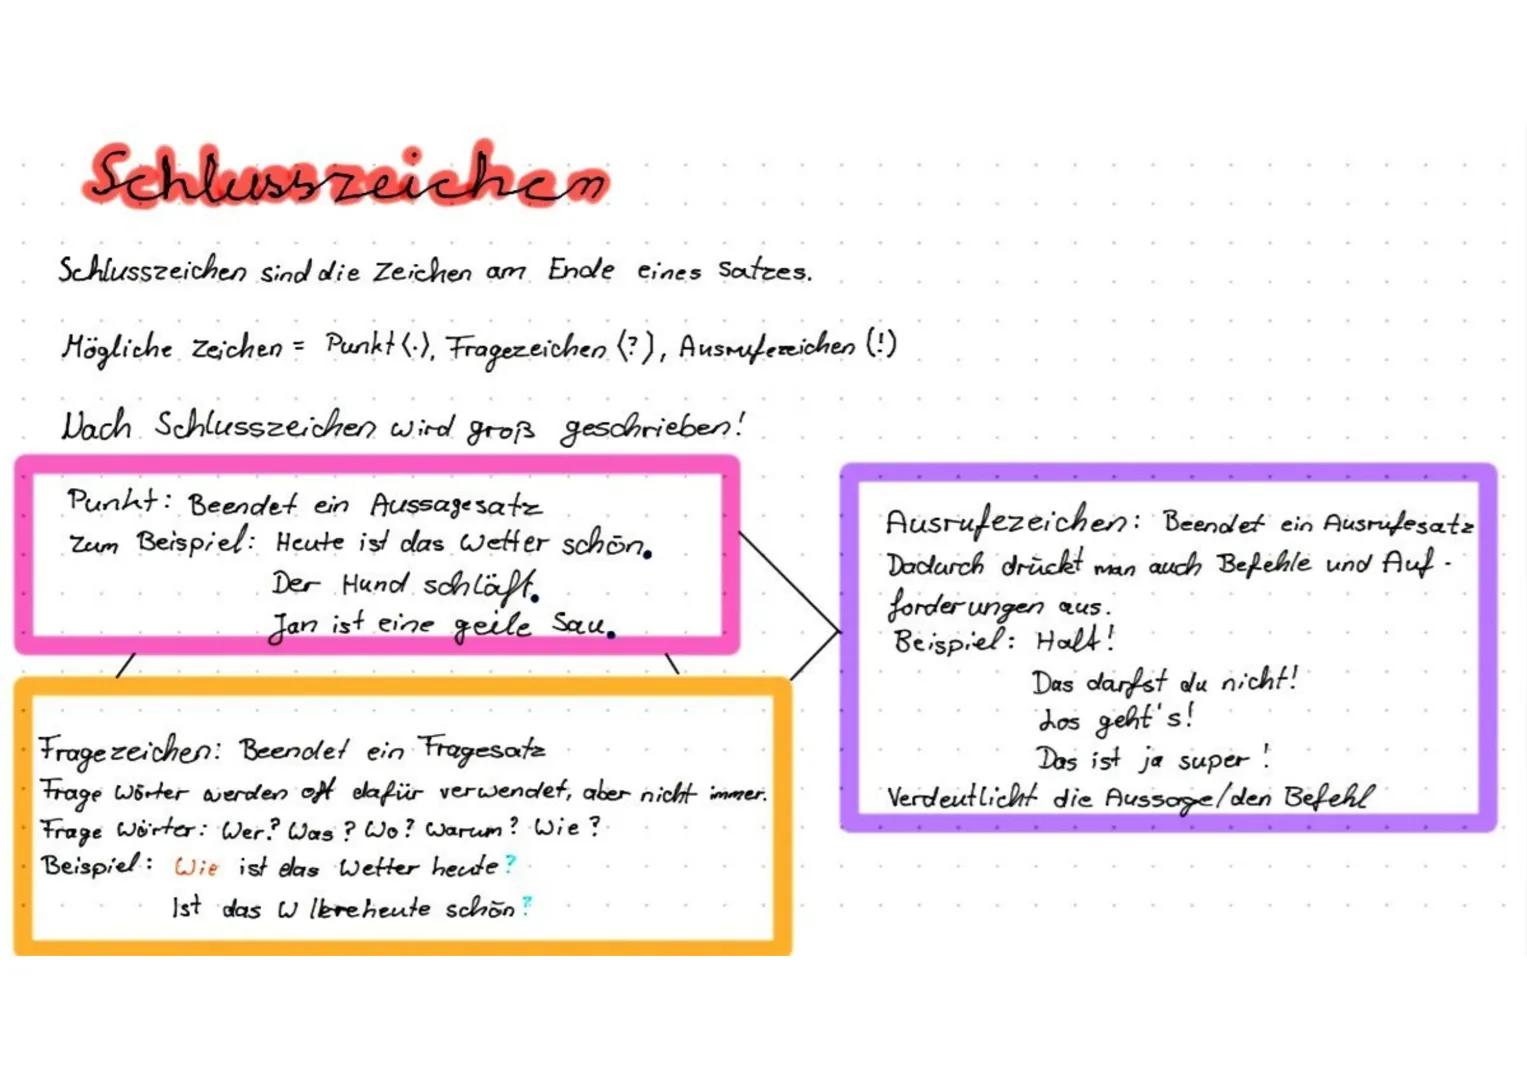 Schlusszeichen
Schlusszeichen sind die Zeichen am Ende eines Satzes.
Mögliche Zeichen = Punkt (.), Fragezeichen (?), Ausrufezeichen (!)
Nach Schlusszeichen wird groß geschrieben!
Punkt: Beendet ein Aussagesatz
zum Beispiel: Heute ist das Wetter schön.
Der Hund schläft.
Jan ist eine geile Sau.
Fragezeichen: Beendet ein Fragesatz
Frage Wörter werden oft dafür verwendet, aber nicht immer.
Frage Wörter: Wer? Was? Wo? Warum? Wie?
Beispiel: Wie ist das Wetter heute?
Ist das W heute schön?
Ausrufezeichen: Beendet ein Ausrufesatz
Dadurch drückt man auch Befehle und Auf-
forderungen aus.
Beispiel: Halt!
Das darfst du nicht!
Los geht's!
Das ist ja super!
Verdeutlicht die Aussage/den Befehl